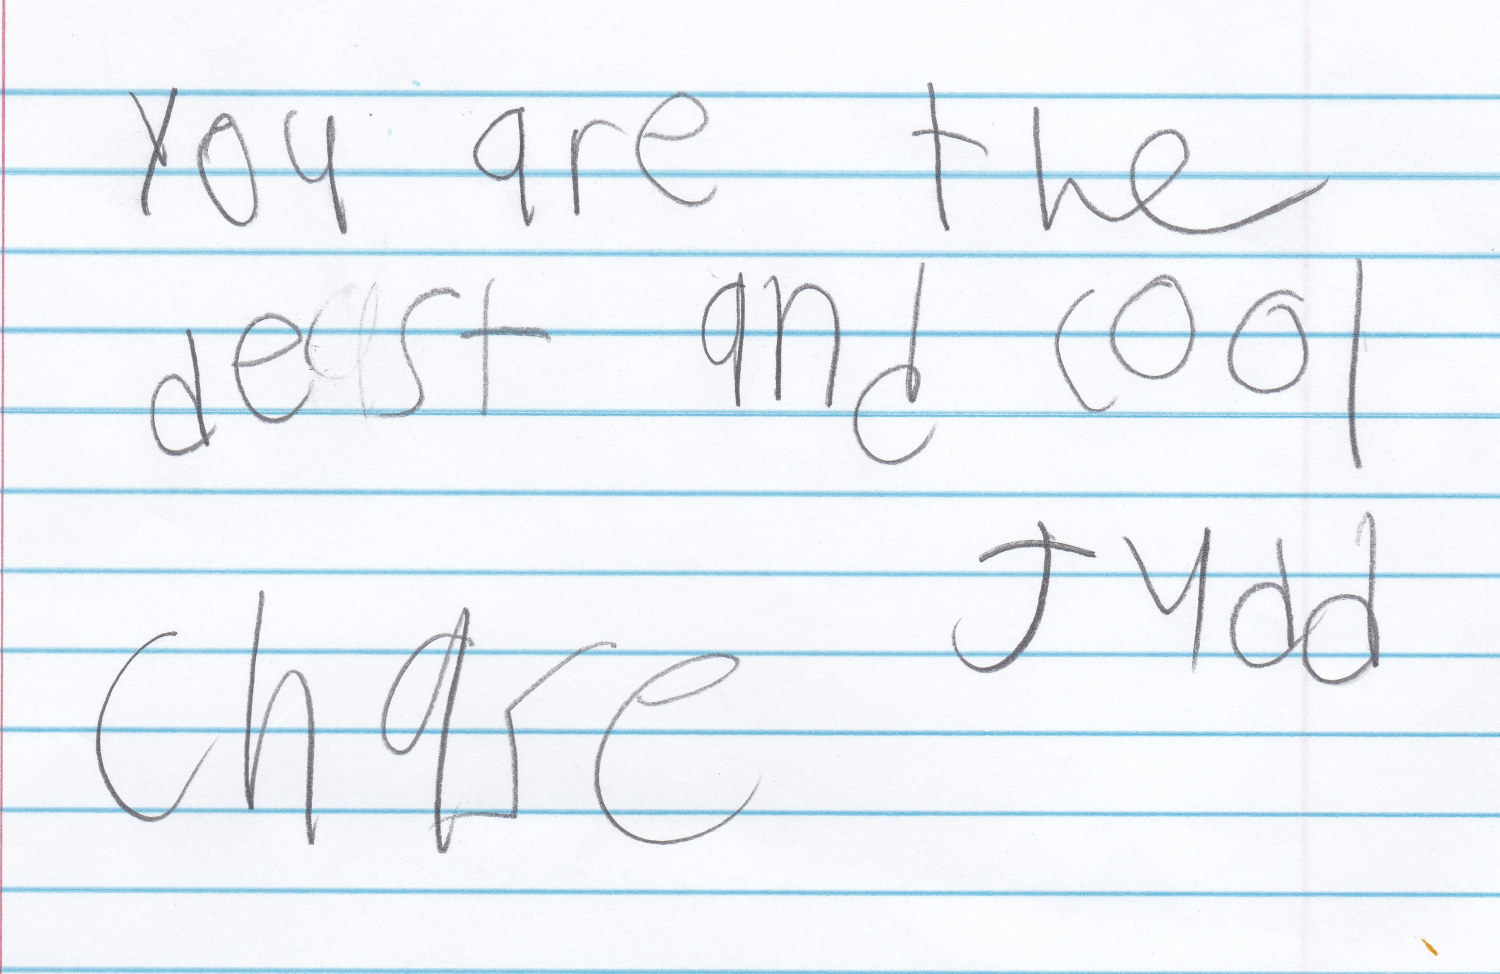 you are the
dest and cool
Judd
chase